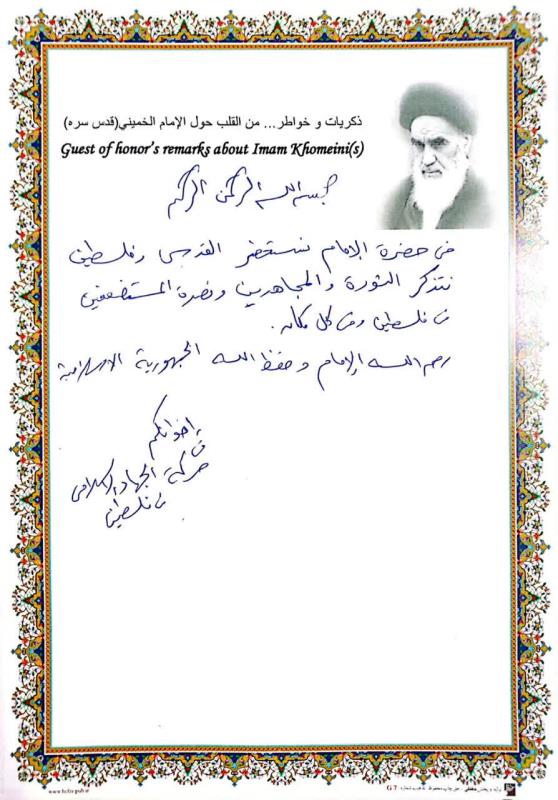 ذكريات و خواطر... من القلب حول الإمام الخميني(قدس سره)
Guest of honor's remarks about Imam Khomeini(s)
بسم الله الرحمن الرحيم
في حضرة الإمام نستحضر القدس وفلسطين
نتذكر الثورة والمجاهدين ونصرة المستضعفين
في فلسطين وفي كل مكان.
رحم الله الإمام وحفظ الله الجمهورية الاسلامية
إخوانكم
في
حركة الجهاد الإسلامي
في فلسطين
G 7